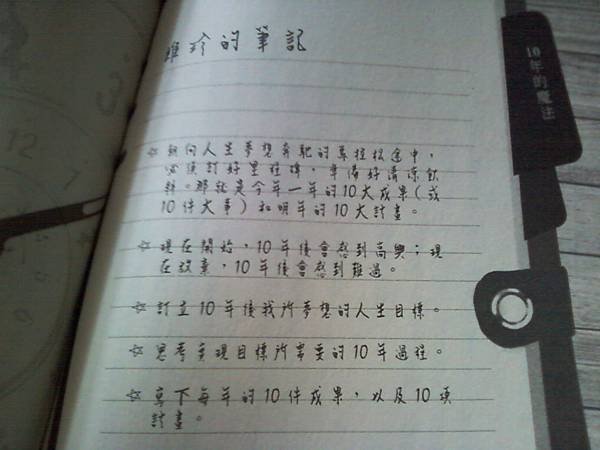 雅珍的筆記
10年的魔法
☆ 朝向人生夢想奔馳的馬拉松途中，
必須訂好里程碑，準備好清涼飲
料。那就是今年一年的10大成果（或
10件大事）和明年的10大計畫。
☆ 現在開始，10年後會感到高興；現
在放棄，10年後會感到難過。
☆ 訂立10年後我所夢想的人生目標。
☆ 思考實現目標所需要的10年過程。
☆ 寫下每年的10件成果，以及10項
計畫。
12